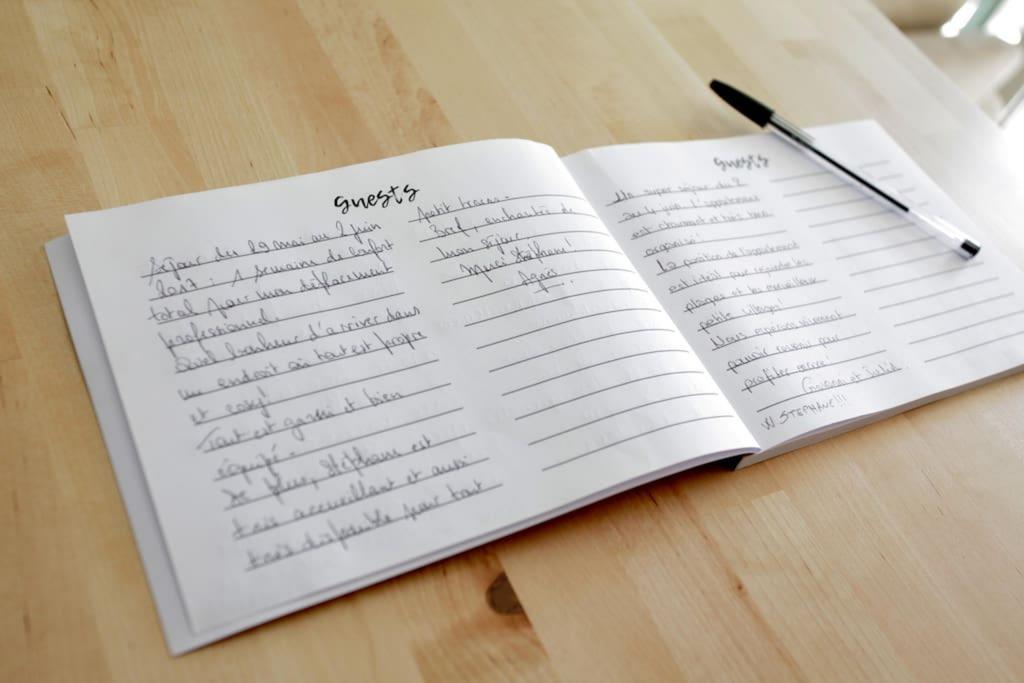 guests
Séjour du 29 mai au 2 juin
2017 : 1 semaine de confort
total pour mon déplacement
professionnel
Quel bonheur d'arriver dans
un endroit où tout est propre
et cosy!
Tout est garni et bien
équipé.
De plus, Stéphane est
très accueillant et aussi
très disponible pour tout
petit tracas.
Bref, enchantée de
mon séjour
Merci Stéphane!
Agnès
guests
Un super séjour du 2
au 4 juin. L'appartement
est charmant et très bien
organisé!
La position de l'appartement
est idéal pour rejoindre les
plages et les merveilleux
petits village!
Nous espérons vivement
pouvoir revenir pour
profiter encore!
et
W STEPHANE!!!